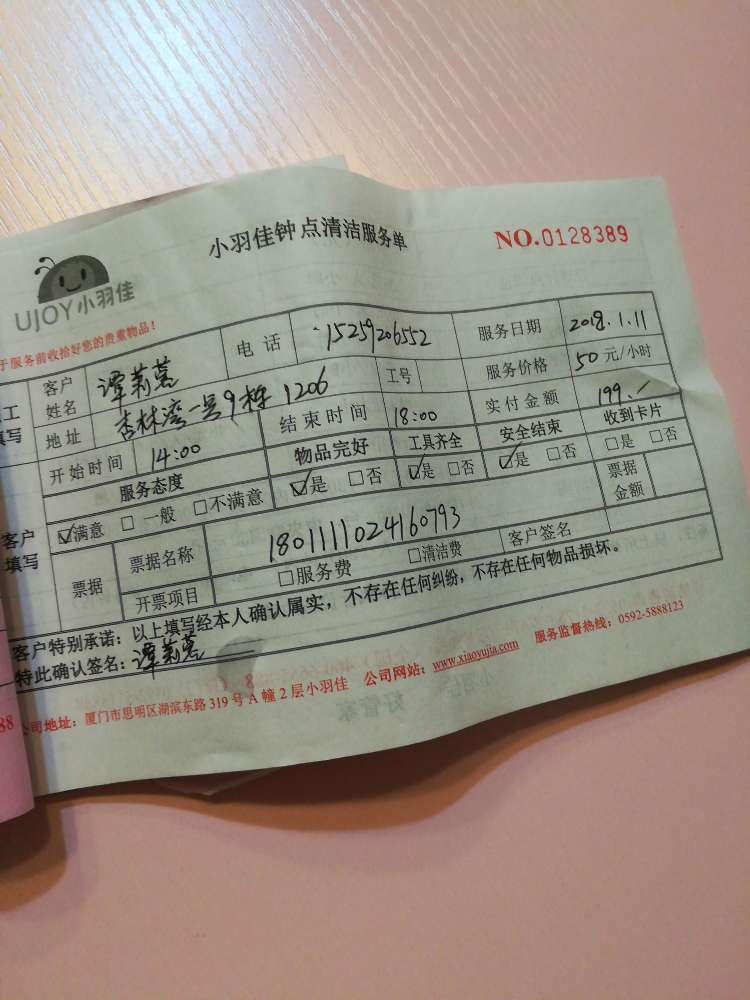 小羽佳钟点清洁服务单
NO.0128389
UJOY小羽佳
于服务前收拾好您的贵重物品！
工填写 客户姓名 谭莉莛 电话 15259206552 服务日期 2018.1.11
地址 杏林湾一号9栋1206 工号 服务价格 50元/小时
开始时间 14:00 结束时间 18:00 实付金额 199.-
服务态度 物品完好 工具齐全 安全结束 收到卡片
客户填写 ☑满意 □一般 □不满意 ☑是 □否 ☑是 □否 ☑是 □否 □是 □否
票据 票据名称 1801111024160793 票据金额
开票项目 □服务费 □清洁费 客户签名
客户特别承诺：以上填写经本人确认属实，不存在任何纠纷，不存在任何物品损坏。
特此确认签名：谭莉莛
88 公司地址：厦门市思明区湖滨东路319号A幢2层小羽佳 公司网站：www.xiaoyujia.com 服务监督热线：0592-5888123